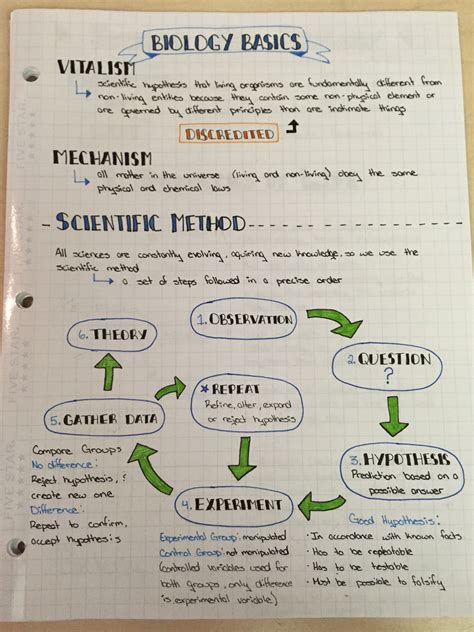 BIOLOGY BASICS
VITALISM
scientific hypothesis that living organisms are fundamentally different from
non-living entities because they contain some non-physical element or
are governed by different principles than are inatimate things
DISCREDITED
MECHANISM
all matter in the universe (living and non-living) obey the same
physical and chemical laws
SCIENTIFIC METHOD
All sciences are constantly evolving, aquiring new knowledge, so we use the
scientific method
a set of steps followed in a precise order
1. OBSERVATION
2. QUESTION
?
3. HYPOTHESIS
Prediction based on a
possible answer
Good Hypothesis:
· In accordance with known facts
· Has to be repeatable
· Has to be testable
· Must be possible to falsify
4. EXPERIMENT
Experimental Group: manipulated
Control Group: not manipulated
(controlled variables used for
both groups, only difference
is experimental variable)
* REPEAT
Refine, alter, expand
or reject hypothesis
5. GATHER DATA
Compare Groups
No difference:
Reject hypothesis,
create new one
Difference:
Repeat to confirm,
accept hypothesis
6. THEORY
FIVE STAR
FIVE STAR
FIVE STAR